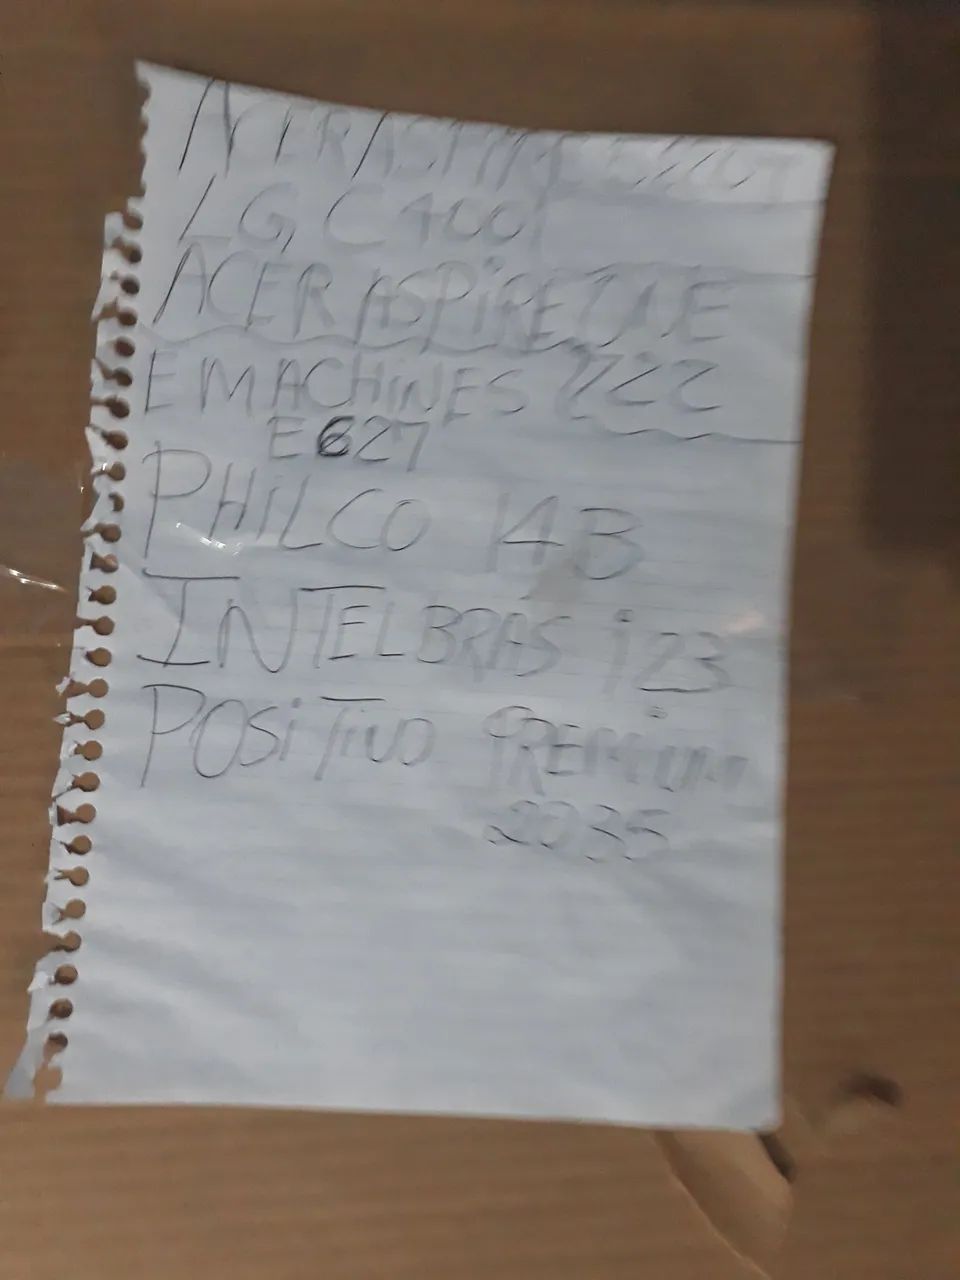 ACER ASPIRE
LG C400
ACER ASPIRE ONE
EMACHINES 722
E627
PHILCO 14B
INTELBRAS i23
POSITIVO PREMIUM
2035